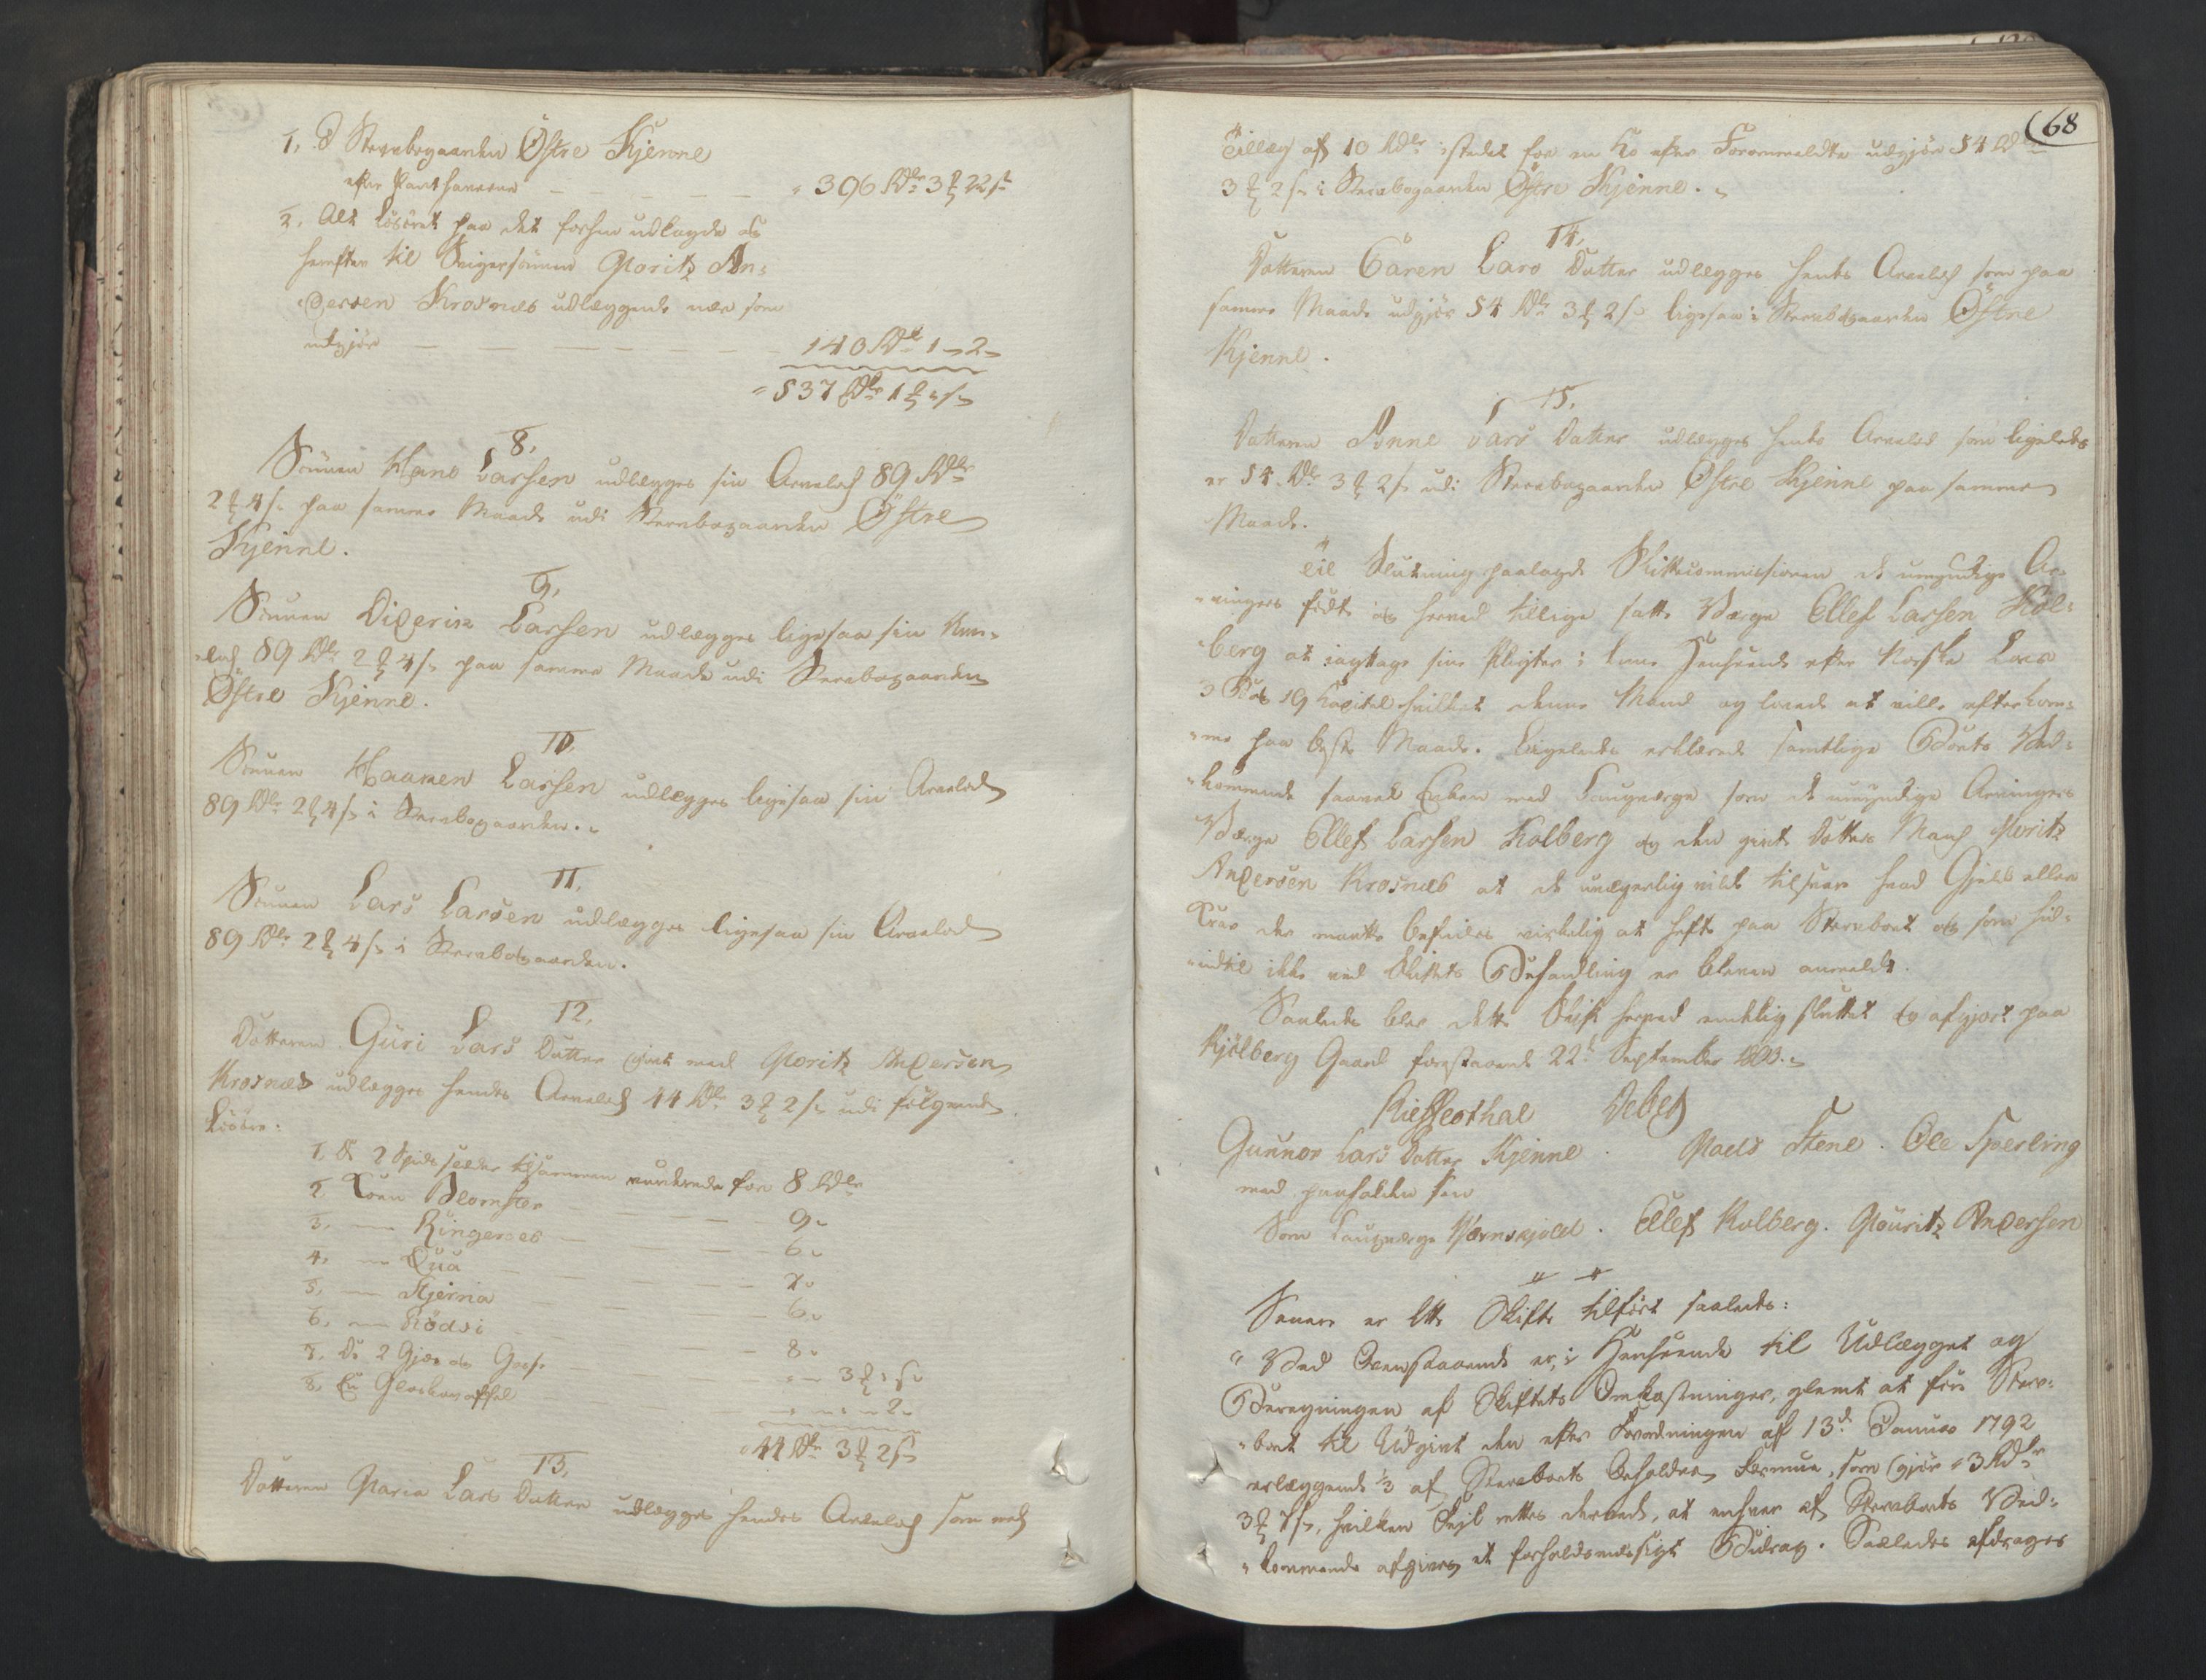 1. I Stervbogaarden Östre Kjenne
efter Panthaverne — — — — " 396 Rdlr 3 ₰ 22 s
2. Alt Lösöret paa det forhen udlagde og
herefter til Svigersönnen Moritz An=
dersen Krosnæs udlæggende nær som
udgjör — — — — — — 140 Rdlr 1 " 2 "
" 537 Rdlr 1 ₰ " s
8.
Sönnen Hans Larssen udlægges sin Arvelod 89 Rdlr
2 ₰ 4 s paa samme Maade udi Stervbogaarden Östre
Kjenne.
9.
Sönnen Diderik Larssen udlægges ligesaa sin Arve=
"lod 89 Rdlr 2 ₰ 4 s paa samme Maade udi Stervbogaarden
Östre Kjenne.
10.
Sönnen Haagen Larssen udlægges ligesaa sin Arvelod
89 Rdlr 2 ₰ 4 s i Stervbogaarden.
11.
Sönnen Lars Larsen udlægges ligesaa sin Arvelod
89 Rdlr 2 ₰ 4 s i Stervbogaarden.
12.
Datteren Guri Lars Datter givt med Moritz Andersen
Krosnæs udlægges hendes Arvelod 44 Rdlr 3 ₰ 2 s udi fölgende
Lösöre:
1. 2 tilsammen vurderede for 8 Rdlr
2. Koen Blomster — — — — 9 "
3. — Ringeroes — — — 6 "
4. — — — — 7 "
5. — Stjerna — — — 6 "
6. — Rödsi — — — 8 "
7. Do 2 Gjæs og Gasse — — " — 3 ₰ " s
8. En — — — " — " — 2 "
" 44 Rdlr 3 ₰ 2 s
13.
Datteren Maria Lars Datter udlægges hendes Arvelod som med
68
Tillæg af 10 Rdlr istedet for en Ko efter Foranmeldte udgjör 54 Rdlr
3 ₰ 2 s i Stervbogaarden Östre Kjenne.
14.
Datteren Caren Lars Datter udlægges hendes Arvelod som paa
samme Maade udgjör 54 Rdlr 3 ₰ 2 s ligesaa i Stervbogaarden Östre
Kjenne.
15.
Datteren Anne Lars Datter udlægges hendes Arvelod som ligeledes
er 54 Rdlr 3 ₰ 2 s udi Stervbogaarden Östre Kjenne paa samme
Maade.
Til Slutning paalagde Skiftecommissionen de umyndige Ar=
"vingers födte og herved tillige satte Værge Ellef Larssen Kol=
berg at iagttage sine Pligter i denne Henseende efter Norske Lovs
3 Bog 19 Capitel hvilket denne Mand og lovede at ville efterkom=
"me paa beste Maade. Ligeledes erklærede samtlige Boets Ved=
"kommende saavel Enken med Laugværge som de umyndige Arvingers
Værge Ellef Larssen Kolberg og den givte Datters Mand Moritz
Andersen Krosnæs at de uvægerlig vilde tilsvare hvad Gjeld eller
Krav der maatte befindes virkelig at hefte paa Stervboet og som hid=
"indtil ikke ved Skiftets Behandling er bleven anmeldt.
Saaledes blev dette Skifte herved endelig sluttet og afgjort paa
Kjölberg Gaard forestaaende 22d September 1803.
Debes
Gunnor Lars Datter Kjenne . Stene . Ole Sperling
med paaholden Pen
Som Laugværge . Ellef Kolberg. Mouritz Andersen
Senere er dette Skifte tilfört saaledes:
" Ved Ovenstaaende er, i Henseende til Udlægget og
Beregningen af Skiftets Omkostninger, glemt at före Sterv=
"boet til Udgivt den efter Forordningen af 13d Januar 1792
erlæggende ⅓ af Stervboets Beholdne Formue, som gjör " 3 Rdlr
3 ₰ 7 s, hvilken Fejl rettes derved, at enhver af Stervboets Ved=
"kommende afgiver et forholdsmæssigt Bidrag. Saaledes afdrages